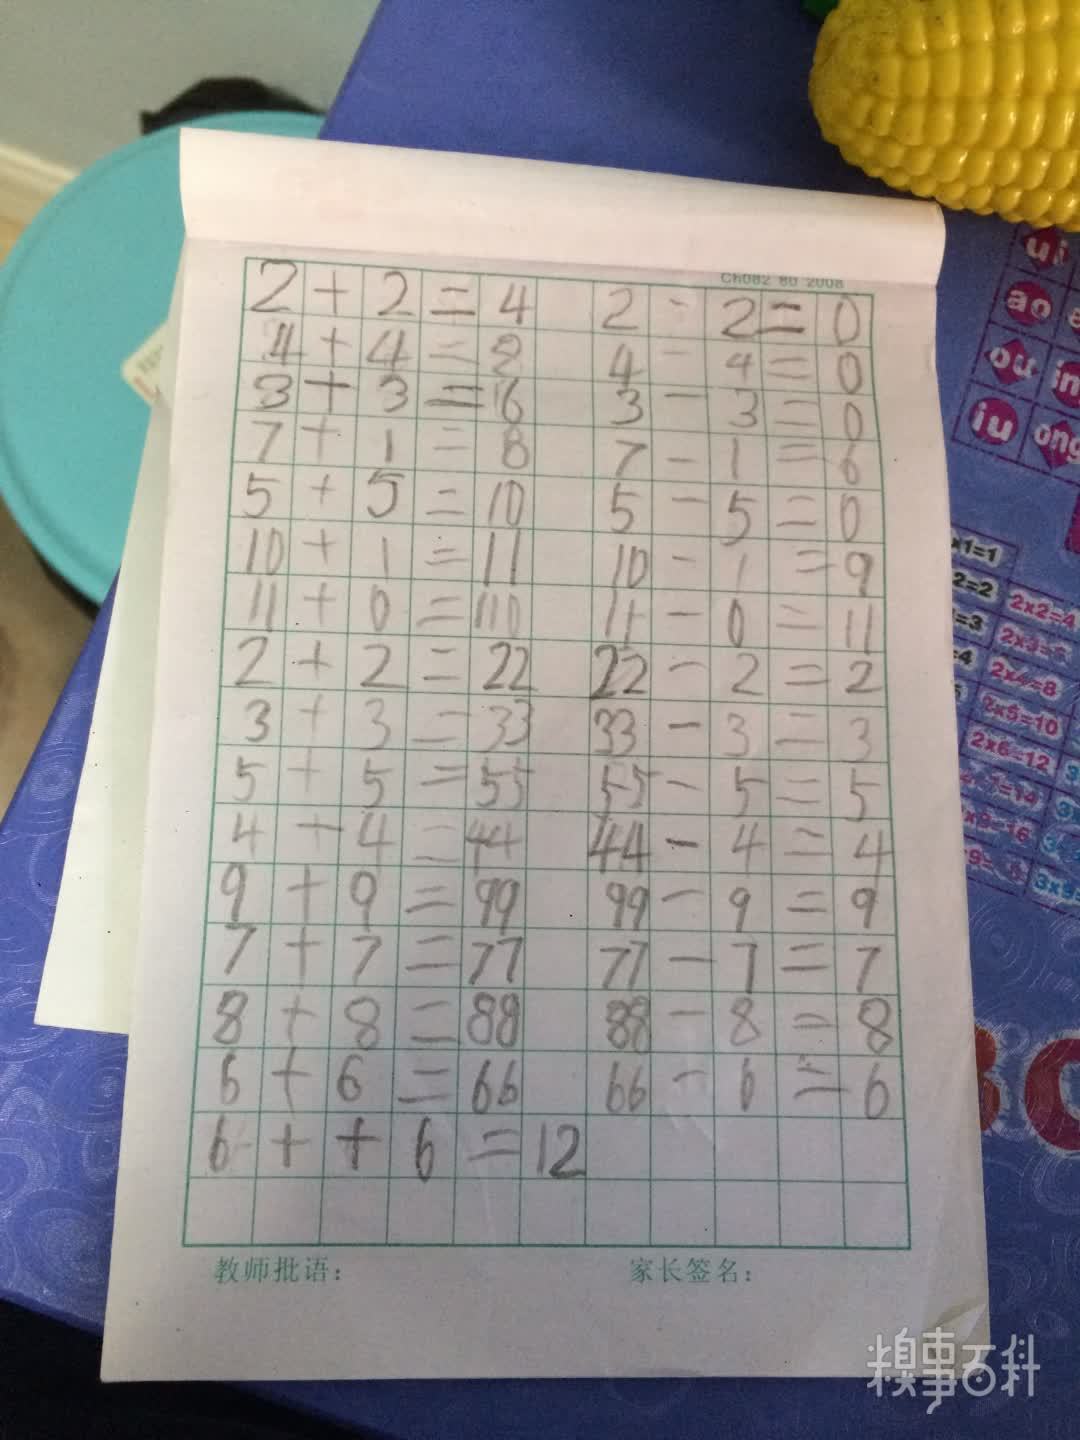 Ch082 80 2008
2 + 2 = 4 2 - 2 = 0
4 + 4 = 8 4 - 4 = 0
3 + 3 = 6 3 - 3 = 0
7 + 1 = 8 7 - 1 = 6
5 + 5 = 10 5 - 5 = 0
10 + 1 = 11 10 - 1 = 9
11 + 0 = 110 11 - 0 = 11
2 + 2 = 22 22 - 2 = 2
3 + 3 = 33 33 - 3 = 3
5 + 5 = 55 55 - 5 = 5
4 + 4 = 44 44 - 4 = 4
9 + 9 = 99 99 - 9 = 9
7 + 7 = 77 77 - 7 = 7
8 + 8 = 88 88 - 8 = 8
6 + 6 = 66 66 - 6 = 6
6 + + 6 = 12
教师批语： 家长签名：
ui
ao
ou in
iu ong
x1=1
2=2 2x2=4
=3 2x3=
=4 2x4=8
2x5=10
2x6=12
=14
=16
3x9
糗事百科